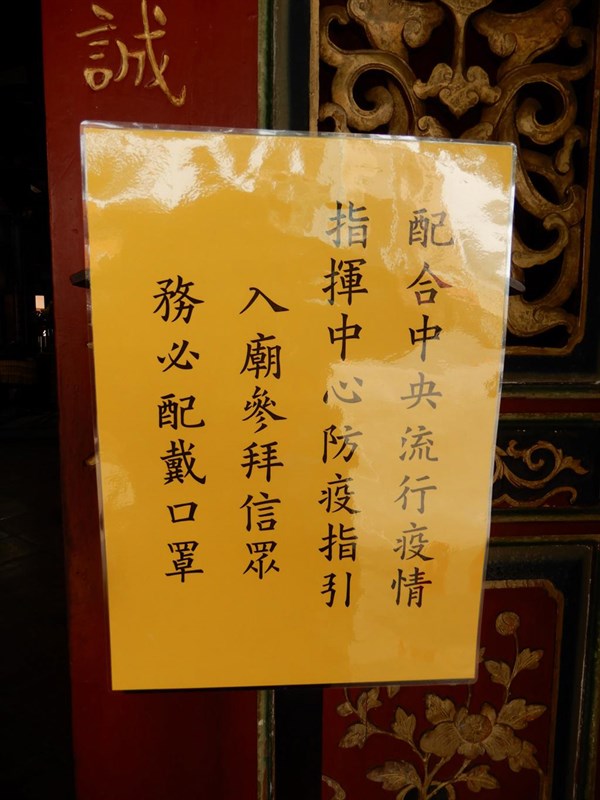 誠
配合中央流行疫情
指揮中心防疫指引
入廟參拜信眾
務必配戴口罩